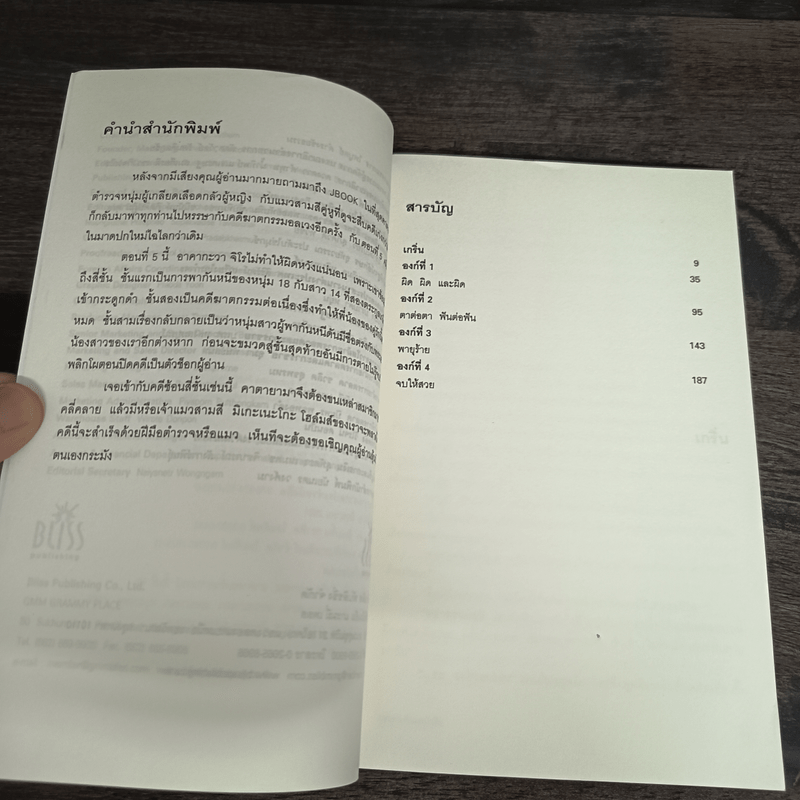 คำนำสำนักพิมพ์
หลังจากมีเสียงคุณผู้อ่านมากมายถามมาถึง JBOOK ในที่สุด
ตำรวจหนุ่มผู้เกลียดเลือดกลัวผู้หญิง กับแมวสามสีคู่หูที่ดูจะสืบคดี
ก็กลับมาพาทุกท่านไปหรรษากับคดีฆาตกรรมอลเวงอีกครั้ง กับตอนที่ 5
ในมาดปกใหม่ไฉไลกว่าเดิม
ตอนที่ 5 นี้ อาคากะวา จิโรไม่ทำให้ผิดหวังแน่นอน
ถึงสี่ชั้น ชั้นแรกเป็นการพากันหนีของหนุ่ม 18 กับสาว 14 ที่สอง
เข้ากระดูกดำ ชั้นสองเป็นคดีฆาตกรรมต่อเนื่องซึ่งทำให้พี่น้องของ
หมด ชั้นสามเรื่องกลับกลายเป็นว่าหนุ่มสาวผู้พากันหนีดันมีชื่อตรงกับ
น้องสาวของเราอีกต่างหาก ก่อนจะขมวดสู่ชั้นสุดท้ายอันมีการตาย
พลิกโผตอนปิดคดีเป็นตัวช็อกผู้อ่าน
เจอเข้ากับคดีซ้อนสี่ชั้นเช่นนี้ คาตายามาจึงต้องขนเหล่าสมาชิก
คลี่คลาย แล้วมีหรือเจ้าแมวสามสี มิเกะเนะโกะ โฮล์มส์ของเราจะ
คดีนี้จะสำเร็จด้วยฝีมือตำรวจหรือแมว เห็นทีจะต้องขอเชิญคุณผู้อ่าน
ตนเองกระมัง
BLISS
สารบัญ
เกริ่น
องก์ที่ 1 9
ผิด ผิด และผิด 35
องก์ที่ 2
ตาต่อตา ฟันต่อฟัน 95
องก์ที่ 3
พายุร้าย 143
องก์ที่ 4
จบให้สวย 187